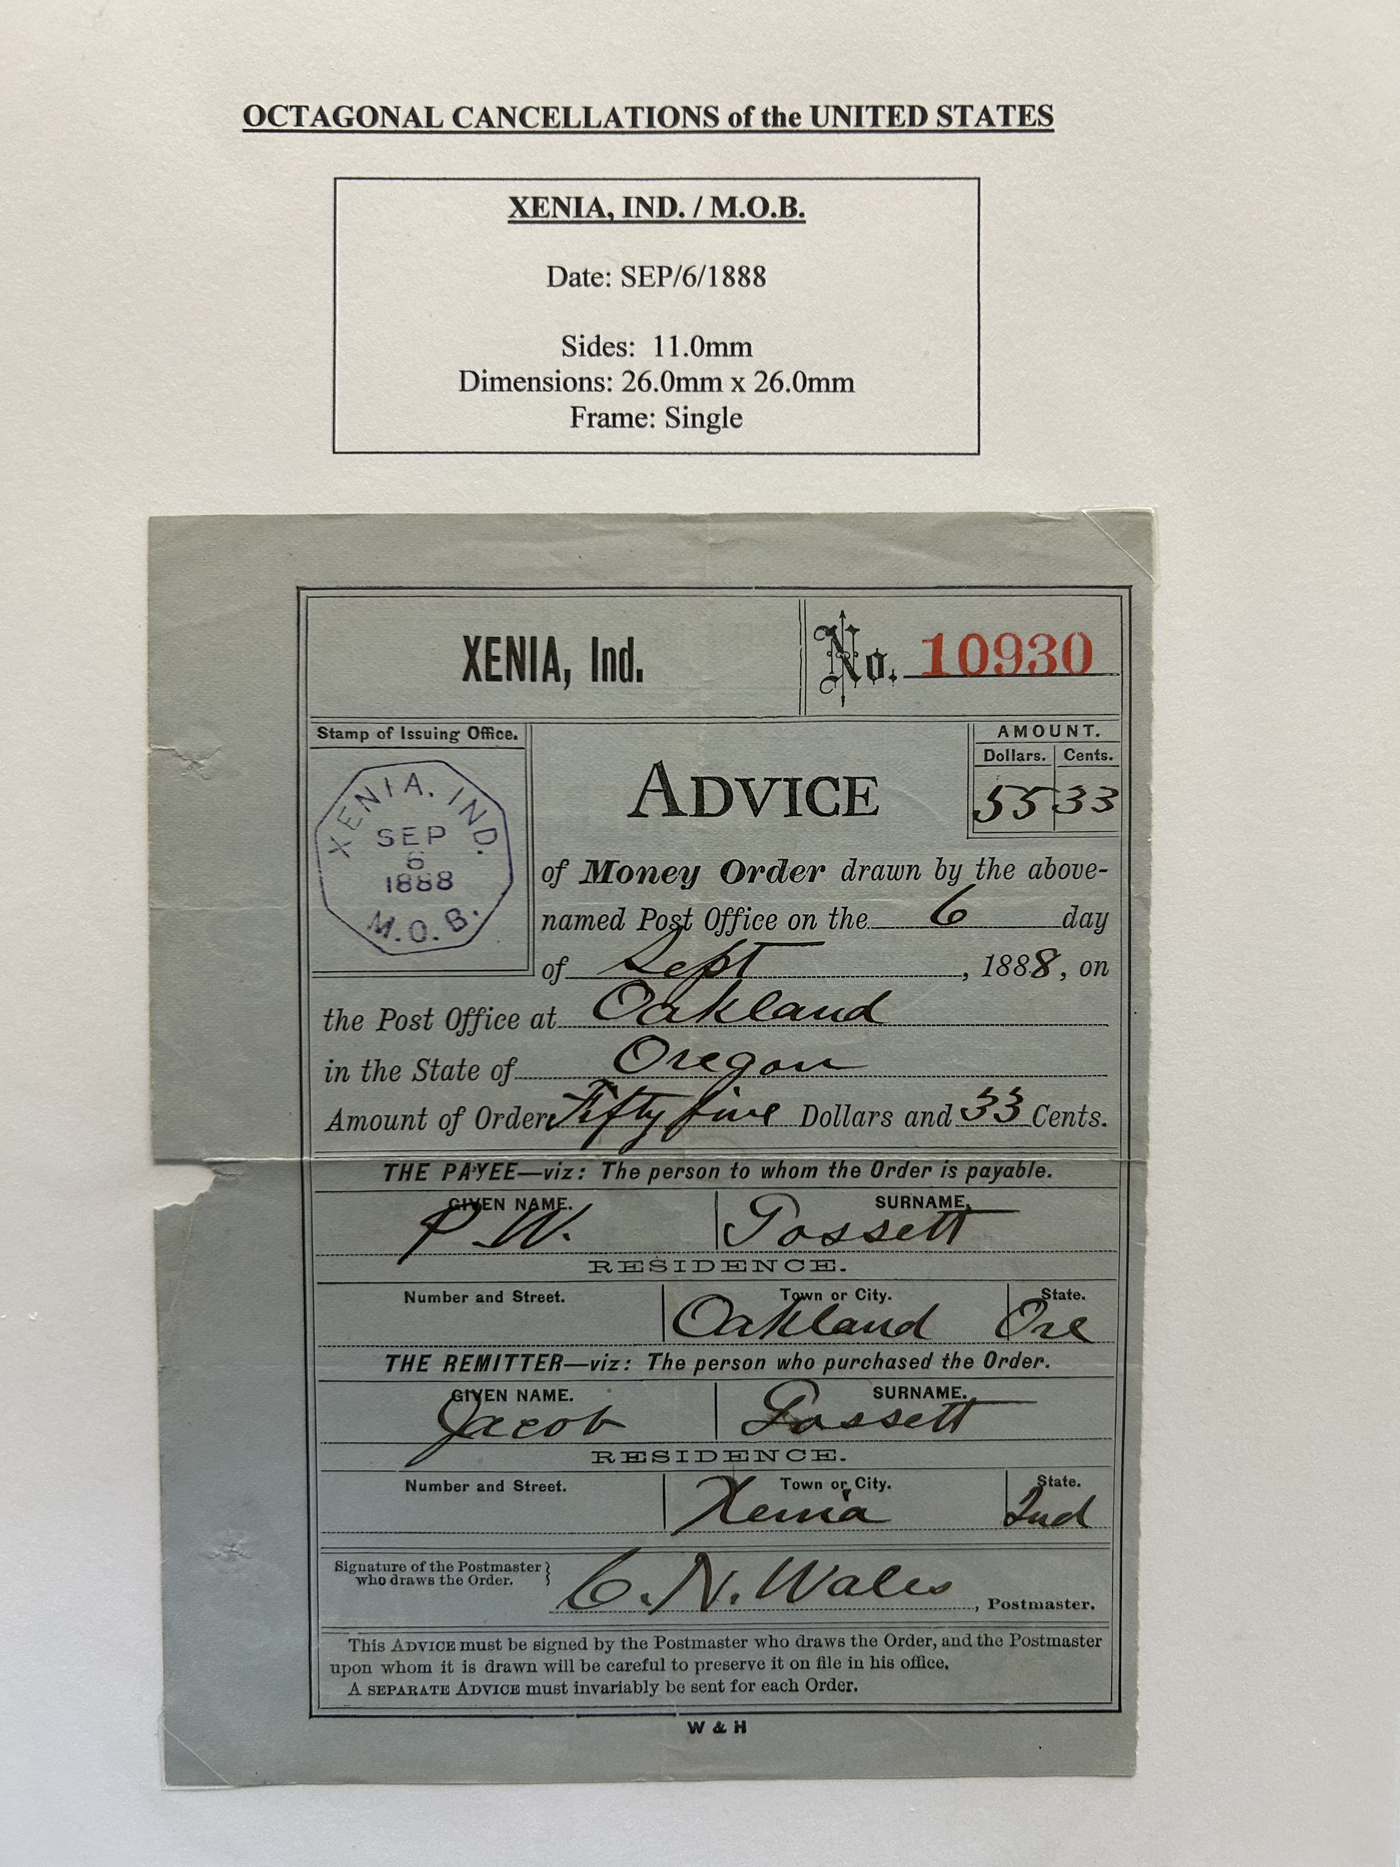 OCTAGONAL CANCELLATIONS of the UNITED STATES
XENIA, IND. / M.O.B.
Date: SEP/6/1888
Sides: 11.0mm
Dimensions: 26.0mm x 26.0mm
Frame: Single
XENIA, Ind.
No. 10930
Stamp of Issuing Office.
XENIA, IND.
SEP
6
1888
M.O.B.
AMOUNT.
Dollars. Cents.
55 33
ADVICE
of Money Order drawn by the above-
named Post Office on the 6 day
of Sept, 1888, on
the Post Office at Oakland
in the State of Oregon
Amount of Order Fifty five Dollars and 33 Cents.
THE PAYEE—viz: The person to whom the Order is payable.
GIVEN NAME. SURNAME.
P. W. Gossett
RESIDENCE.
Number and Street. Town or City. State.
Oakland Ore
THE REMITTER—viz: The person who purchased the Order.
GIVEN NAME. SURNAME.
Jacob Gossett
RESIDENCE.
Number and Street. Town or City. State.
Xenia Ind
Signature of the Postmaster
who draws the Order.
C. N. Wales, Postmaster.
This ADVICE must be signed by the Postmaster who draws the Order, and the Postmaster
upon whom it is drawn will be careful to preserve it on file in his office.
A SEPARATE ADVICE must invariably be sent for each Order.
W & H